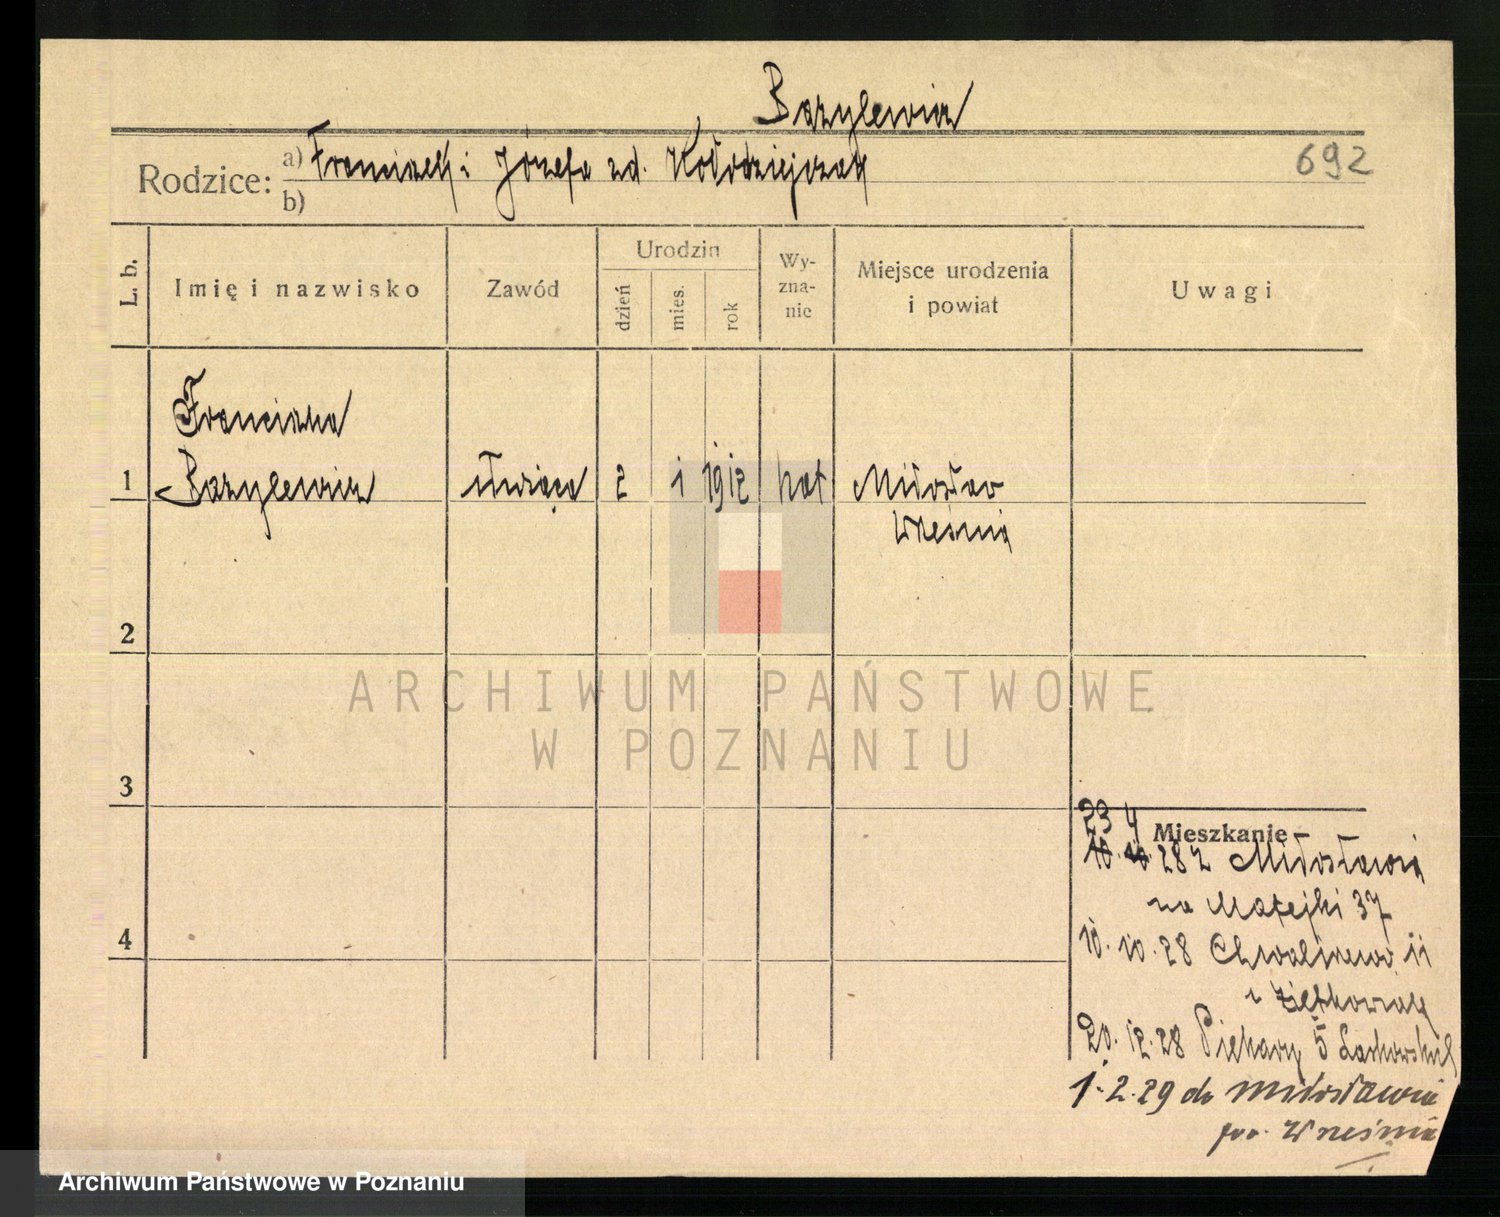 Bazylewicz
Rodzice: a) Franciszek i Józefa zd. Kołodziejczak
b)
692
L. b.
Imię i nazwisko
Zawód
Urodzin
dzień
mies.
rok
Wy-
zna-
nie
Miejsce urodzenia
i powiat
Uwagi
Franciszka
1 Bazylewicz służąca 2 1 1912 kat Miłosław
Września
2
3
4
ARCHIWUM PAŃSTWOWE
W POZNANIU
23 4
Mieszkanie
10. 10. 28 z Miłosławia
na Matejki 37
10. 10. 28 11
20. 12. 28 Piekary 5
1. 2. 29 do Miłosławia
pow. Września
Archiwum Państwowe w Poznaniu